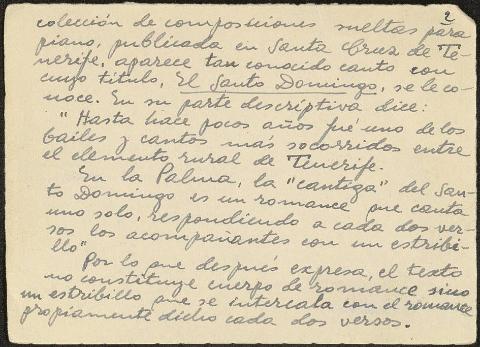 2
colección de composiciones sueltas para
piano, publicada en Santa Cruz de Te-
nerife, aparece tan conocido canto con
cuyo título, El Santo Domingo, se le co-
noce. En su parte descriptiva dice:
"Hasta hace pocos años fué uno de los
bailes y cantos más socorridos entre
el elemento rural de Tenerife.
En la Palma, la "cantiga" del San-
to Domingo es un romance que canta
uno solo, respondiendo a cada dos ver-
sos los acompañantes con un estribi-
llo"
Por lo que después expresa, el texto
no constituye cuerpo de romance sino
un estribillo que se intercala con el romance
propiamente dicho cada dos versos.